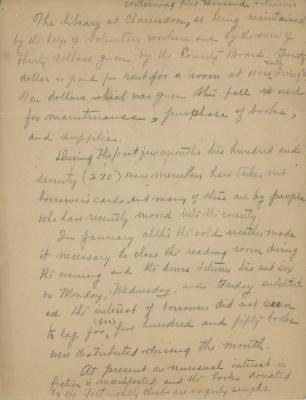 containing five thousand volumes
The library at Clarendon, is being maintained
by the help of voluntary workers and by the sum of
thirty dollars given by the County Board. Twenty
dollar is paid for rent for a room at
Ten dollars which was given this fall is used
for maintenance, purchase of books,
and supplies.
During the past few months two hundred and
seventy (270) new members have taken out
borrower's cards and many of these are by people
who have recently moved into the county.
In January altho the cold weather made
it necessary to close the reading room during
the evening and the hours between two and six
on Monday, Wednesday, and Friday substitut
ed the interest of borrowers did not seem
to lag for, five hundred and fifty books
(550)
were distributed during the month.
At present an unusual interest in
fiction is manifested and the books donated
by the Fortnightly club are eagerly sought.